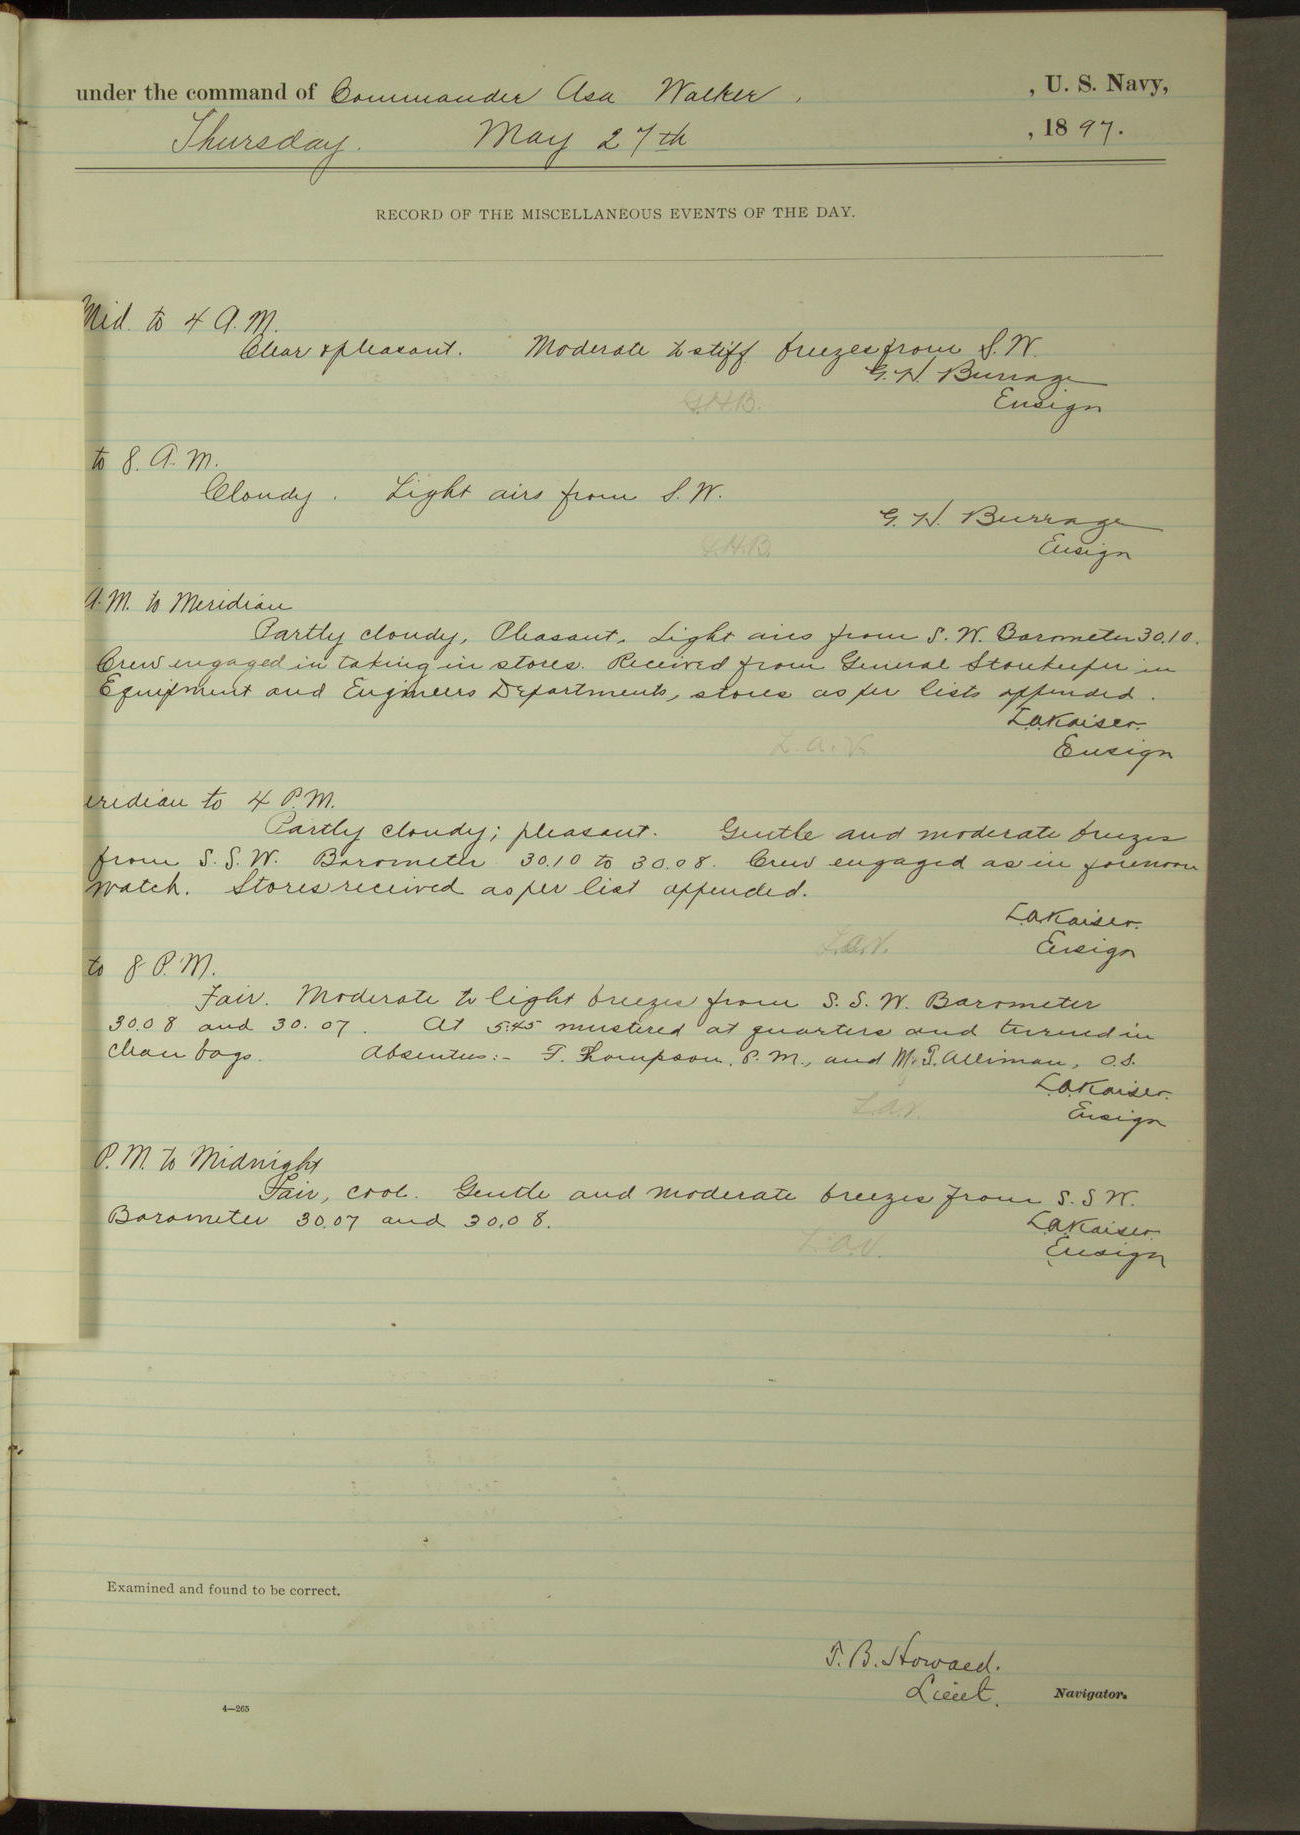 under the command of Commander Asa Walker , U. S. Navy,
Thursday. May 27th , 1897.
RECORD OF THE MISCELLANEOUS EVENTS OF THE DAY.
Mid. to 4 A.M.
Clear & pleasant. Moderate to stiff breezes from S.W.
G. H. Burrage
G.H.B. Ensign
to 8. A.M.
Cloudy. Light airs from S.W.
G. H. Burrage
G.H.B. Ensign
A.M. to Meridian
Partly cloudy, Pleasant. Light airs from S.W. Barometer 30.10.
Crew engaged in taking in stores. Received from General Storekeeper in
Equipment and Engineers Departments, stores as per lists appended.
L.A.Kaiser.
L.A.K. Ensign
eridian to 4 P.M.
Partly cloudy; pleasant. Gentle and moderate breezes
from S.S.W. Barometer 30.10 to 30.08. Crew engaged as in forenoon
watch. Stores received as per list appended.
L.A.Kaiser.
L.A.K. Ensign
to 8 P.M.
Fair. Moderate to light breezes from S.S.W. Barometer
30.08 and 30.07. At 5:45 mustered at quarters and turned in
clean bags. Absentees:- F. Thompson, P.M., and Alliman, O.S.
L.A.Kaiser.
L.A.K. Ensign
P.M. to Midnight
Fair, cool. Gentle and moderate breezes from S.S.W.
Barometer 30.07 and 30.08.
L.A.Kaiser.
L.A.K. Ensign
Examined and found to be correct.
T. B. Howard.
Lieut. Navigator.
4—265